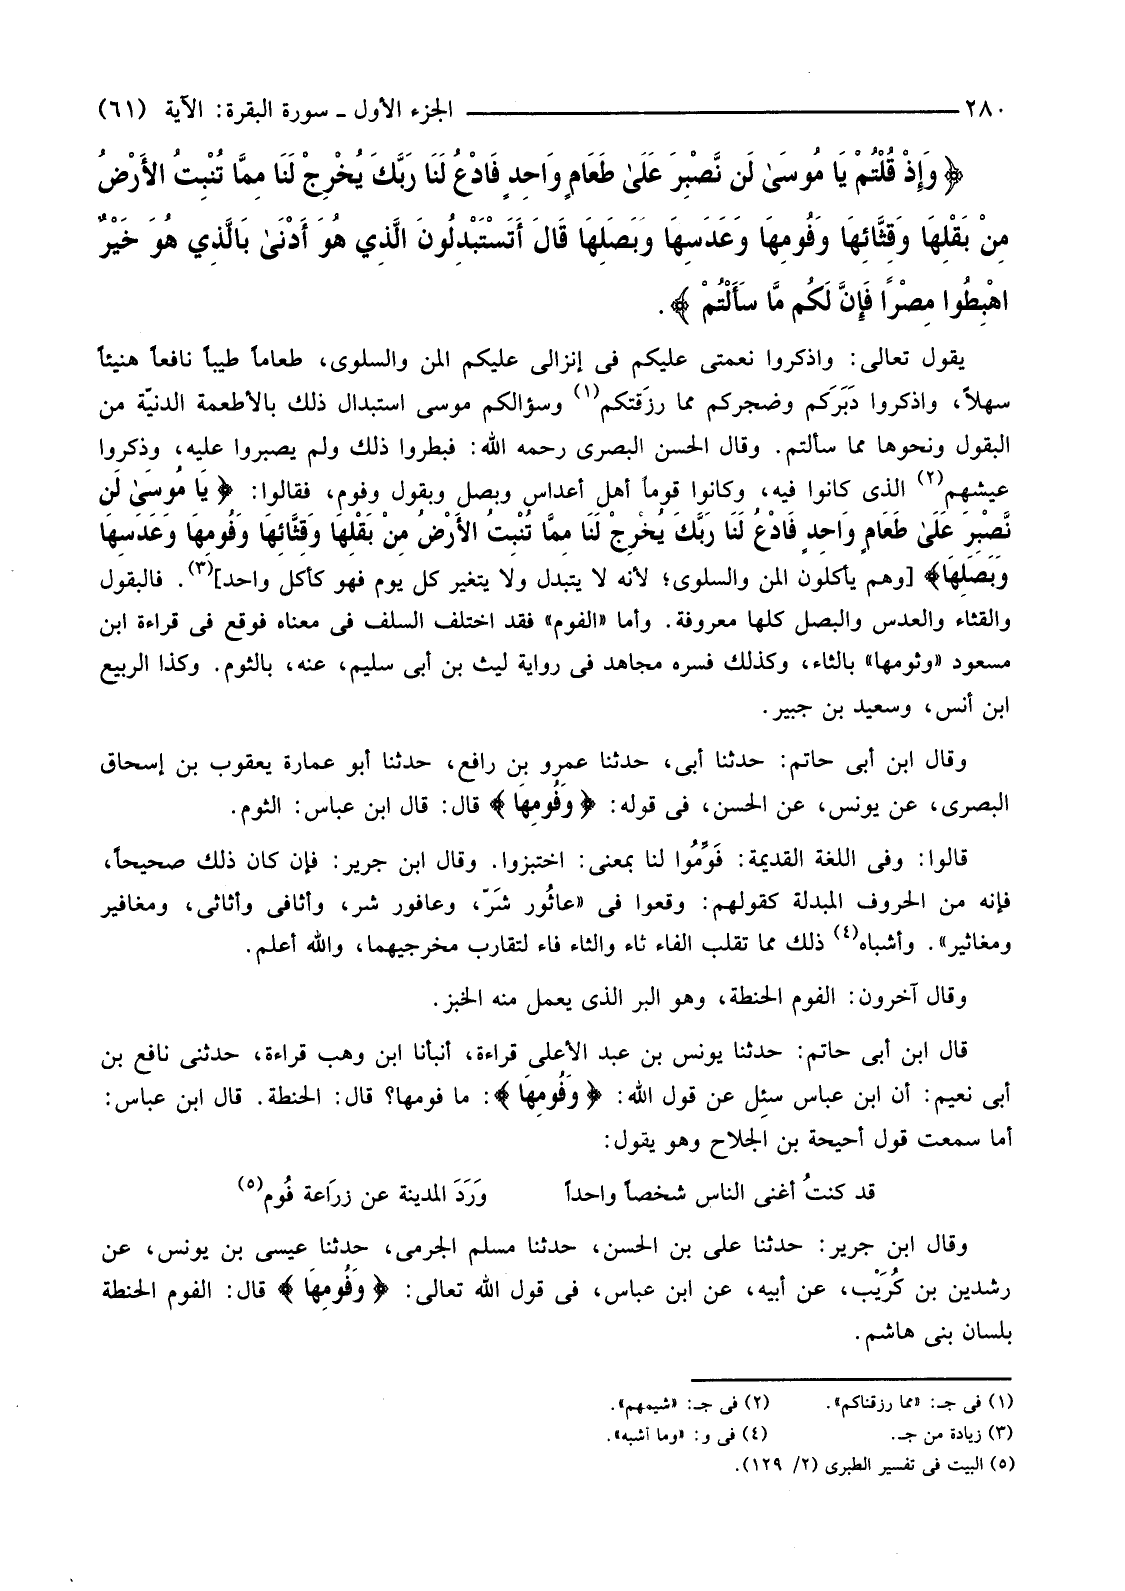 ٢٨٠ الجزء الأول ـ سورة البقرة: الآية (٦١)
﴿ وَإِذْ قُلْتُمْ يَا مُوسَىٰ لَن نَّصْبِرَ عَلَىٰ طَعَامٍ وَاحِدٍ فَادْعُ لَنَا رَبَّكَ يُخْرِجْ لَنَا مِمَّا تُنْبِتُ الأَرْضُ
مِنْ بَقْلِهَا وَقِثَّائِهَا وَفُومِهَا وَعَدَسِهَا وَبَصَلِهَا قَالَ أَتَسْتَبْدِلُونَ الَّذِي هُوَ أَدْنَىٰ بِالَّذِي هُوَ خَيْرٌ
اهْبِطُوا مِصْرًا فَإِنَّ لَكُم مَّا سَأَلْتُمْ ﴾ .
يقول تعالى: واذكروا نعمتى عليكم فى إنزالى عليكم المن والسلوى، طعاماً طيباً نافعاً هنيئاً
سهلاً، واذكروا دَبَرَكم وضجركم مما رزَقتكم(١) وسؤالكم موسى استبدال ذلك بالأطعمة الدنيّة من
البقول ونحوها مما سألتم. وقال الحسن البصرى رحمه الله: فبطروا ذلك ولم يصبروا عليه، وذكروا
عيشهم(٢) الذى كانوا فيه، وكانوا قوماً أهل أعداس وبصل وبقول وفوم، فقالوا: ﴿ يَا مُوسَىٰ لَن
نَّصْبِرَ عَلَىٰ طَعَامٍ وَاحِدٍ فَادْعُ لَنَا رَبَّكَ يُخْرِجْ لَنَا مِمَّا تُنْبِتُ الأَرْضُ مِنْ بَقْلِهَا وَقِثَّائِهَا وَفُومِهَا وَعَدَسِهَا
وَبَصَلِهَا﴾ [وهم يأكلون المن والسلوى؛ لأنه لا يتبدل ولا يتغير كل يوم فهو كأكل واحد](٣). فالبقول
والقثاء والعدس والبصل كلها معروفة. وأما «الفوم» فقد اختلف السلف فى معناه فوقع فى قراءة ابن
مسعود «وثومها» بالثاء، وكذلك فسره مجاهد فى رواية ليث بن أبى سليم، عنه، بالثوم. وكذا الربيع
ابن أنس، وسعيد بن جبير.
وقال ابن أبى حاتم: حدثنا أبى، حدثنا عمرو بن رافع، حدثنا أبو عمارة يعقوب بن إسحاق
البصرى، عن يونس، عن الحسن، فى قوله: ﴿ وَفُومِهَا ﴾ قال: قال ابن عباس: الثوم.
قالوا: وفى اللغة القديمة: فَوِّمُوا لنا بمعنى: اختبزوا. وقال ابن جرير: فإن كان ذلك صحيحاً،
فإنه من الحروف المبدلة كقولهم: وقعوا فى «عاثُور شَرّ، وعافور شر، وأثافى وأثاثى، ومغافير
ومغاثير». وأشباه(٤) ذلك مما تقلب الفاء ثاء والثاء فاء لتقارب مخرجيهما، والله أعلم.
وقال آخرون: الفوم الحنطة، وهو البر الذى يعمل منه الخبز.
قال ابن أبى حاتم: حدثنا يونس بن عبد الأعلى قراءة، أنبأنا ابن وهب قراءة، حدثنى نافع بن
أبى نعيم: أن ابن عباس سئِل عن قول الله: ﴿ وَفُومِهَا ﴾: ما فومها؟ قال: الحنطة. قال ابن عباس:
أما سمعت قول أحيحة بن الجلاح وهو يقول:
قد كنتُ أغنى الناس شخصاً واحداً وَرَدَ المدينة عن زرَاعة فُوم(٥)
وقال ابن جرير: حدثنا على بن الحسن، حدثنا مسلم الجرمى، حدثنا عيسى بن يونس، عن
رشدين بن كُرَيْب، عن أبيه، عن ابن عباس، فى قول الله تعالى: ﴿ وَفُومِهَا ﴾ قال: الفوم الحنطة
بلسان بنى هاشم.
(١) فى جـ: «مما رزقناكم». (٢) فى جـ: «شيمهم».
(٣) زيادة من جـ. (٤) فى و: «وما أشبه».
(٥) البيت فى تفسير الطبرى (٢/ ١٢٩).